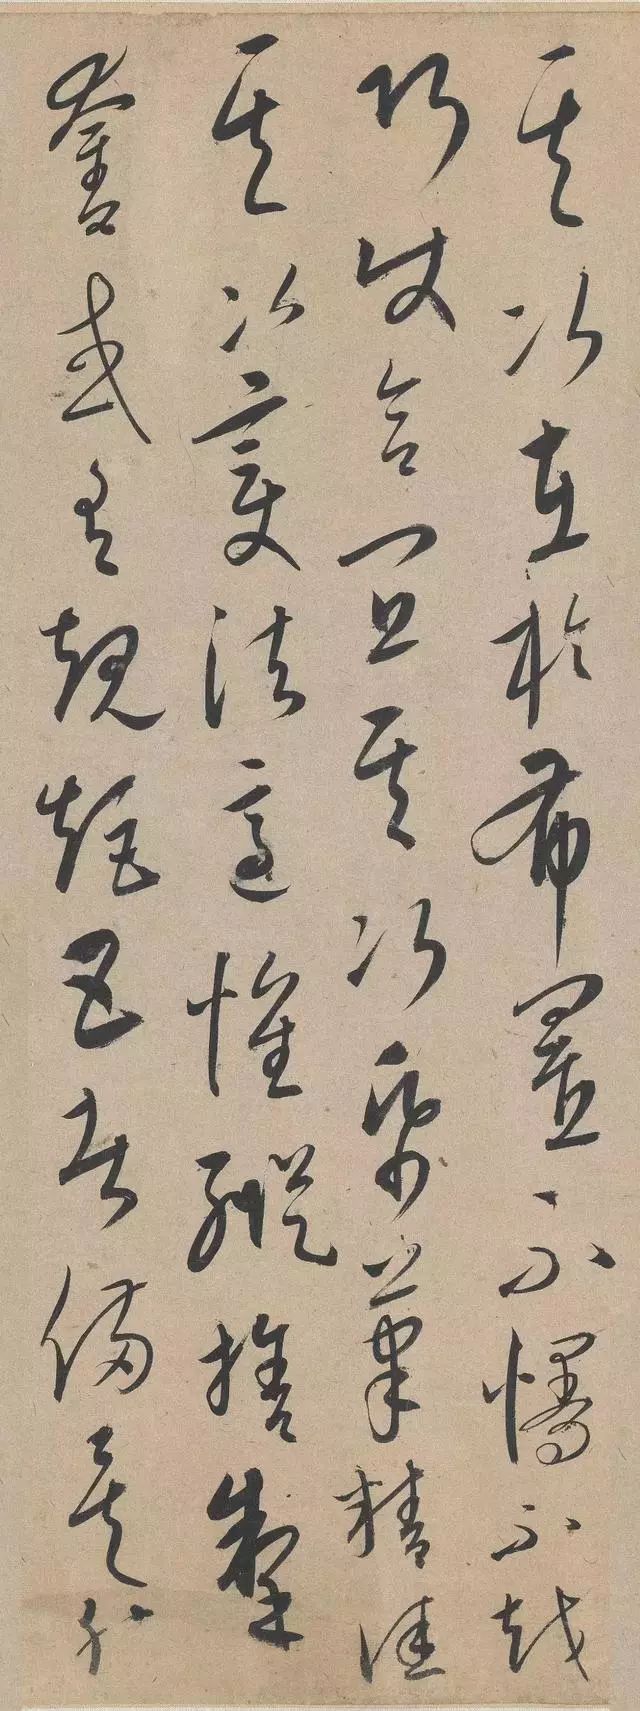 其次在於布置不慢不越
巧使合宜其次帋筆精佳
其次變法適惟縱捨掣
奪咸有規矩五者備矣然